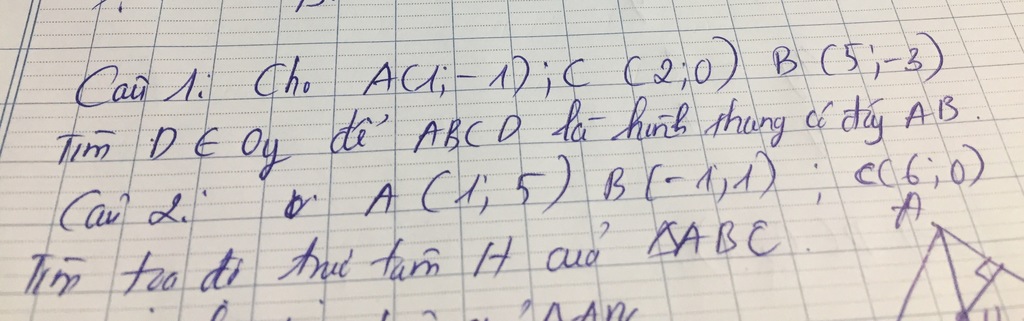 Câu 1: Cho A(1;-1); C (2;0) B (5;-3)
Tìm D ∈ Oy để ABCD là hình thang có đáy AB.
Câu 2: A (1;5) B (-1;1); C(6;0)
Tìm tọa độ trực tâm H của ΔABC.
A